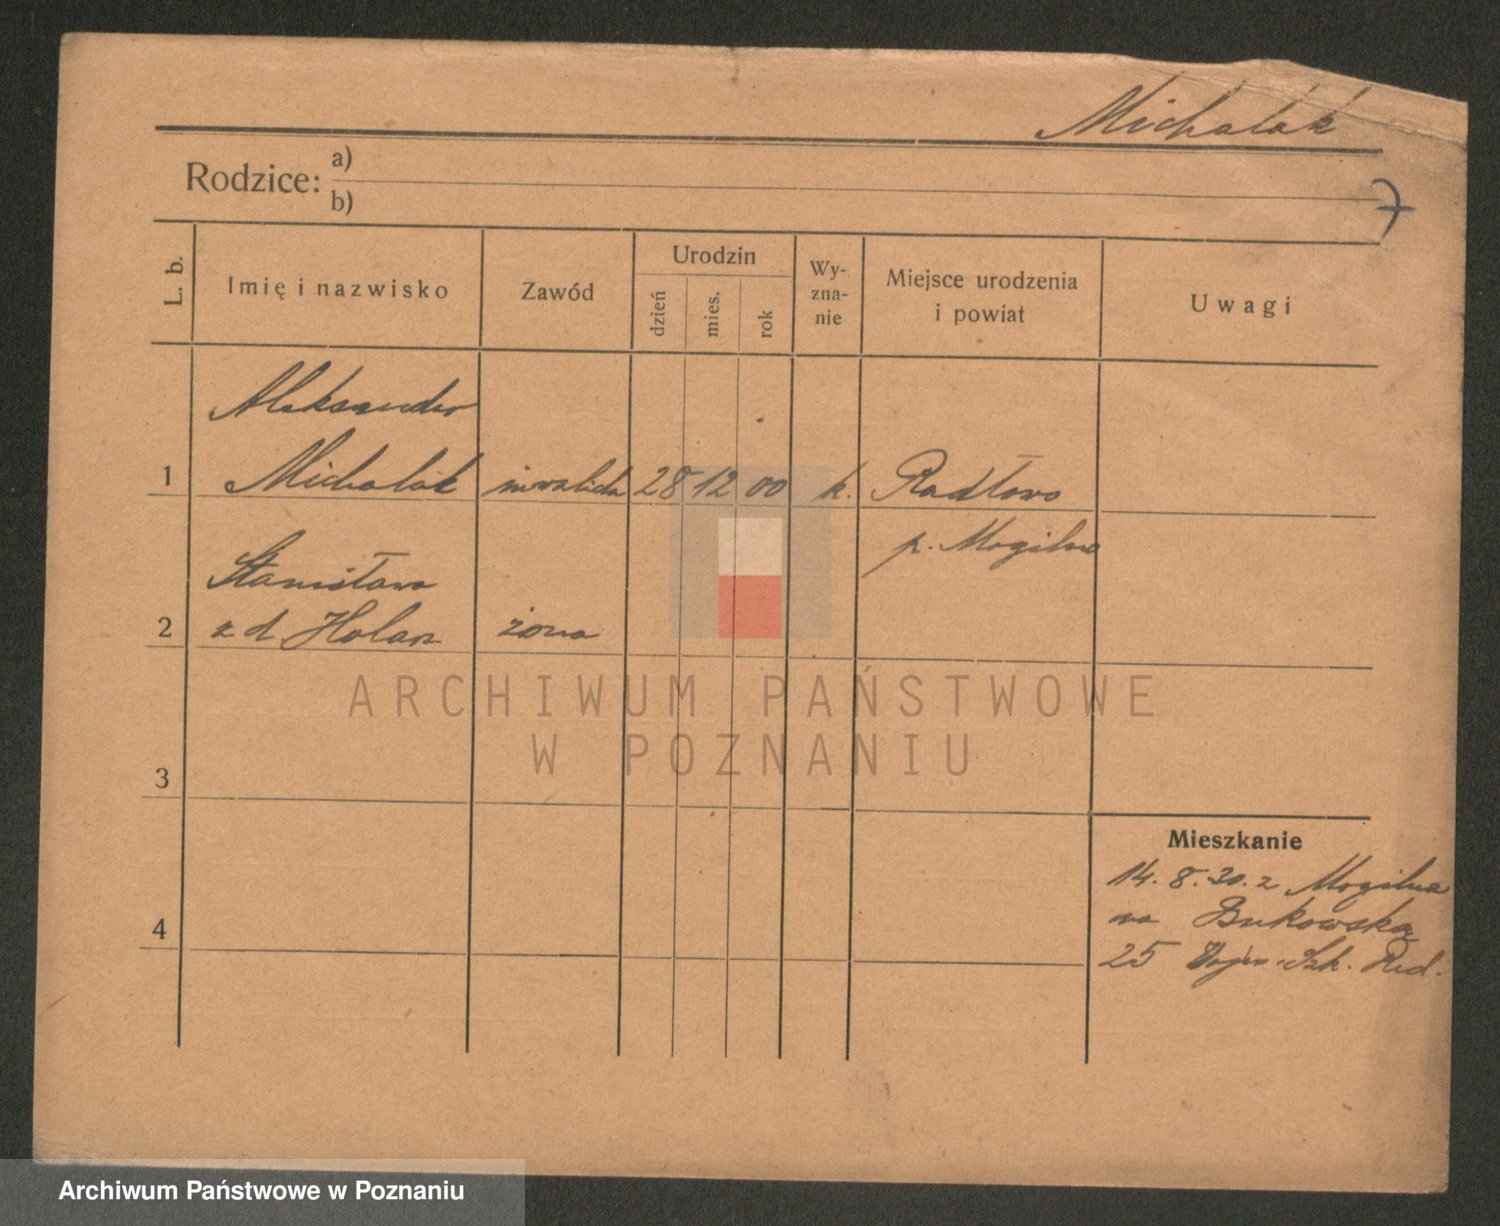 Michalak
Rodzice: a)
b)
7
L. b.
Imię i nazwisko
Zawód
Urodzin
dzień
mies.
rok
Wy-
zna-
nie
Miejsce urodzenia
i powiat
Uwagi
Aleksander
1 Michalak inwalida 28 12 00 k. Radłowo
p. Mogilno
Stanisława
2 z d. Holasz żona
3
Mieszkanie
14. 8. 30. z Mogilna
na Bukowską
4
25 Szk. Pod.
ARCHIWUM PAŃSTWOWE
W POZNANIU
Archiwum Państwowe w Poznaniu